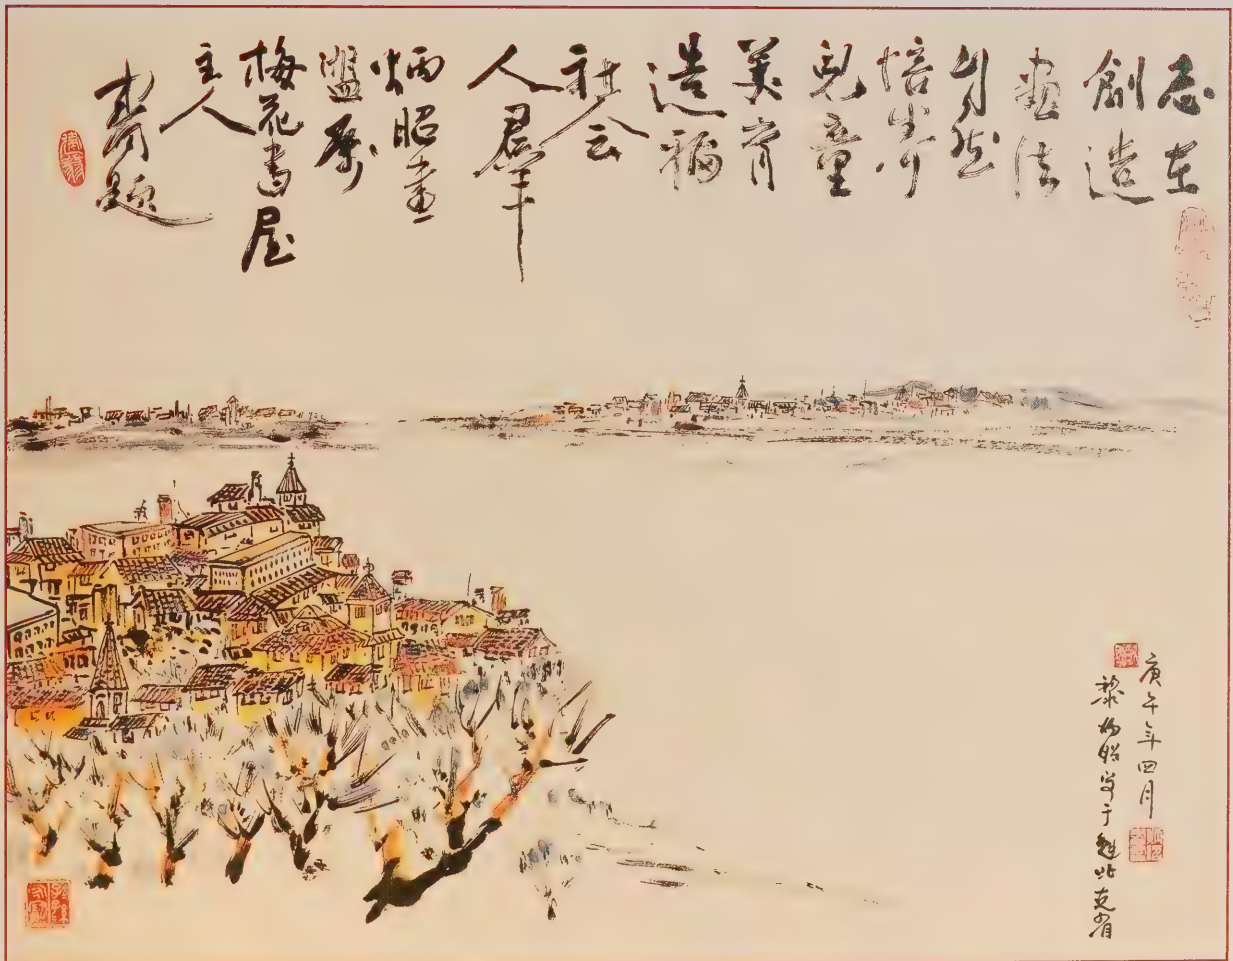 志在
創造
畫法
自然
培养
兒童
美育
造福
社会
人羣
炳昭畫
盟屬
梅花書屋
主人
題
庚午年四月
黎炳昭写于魁北克省